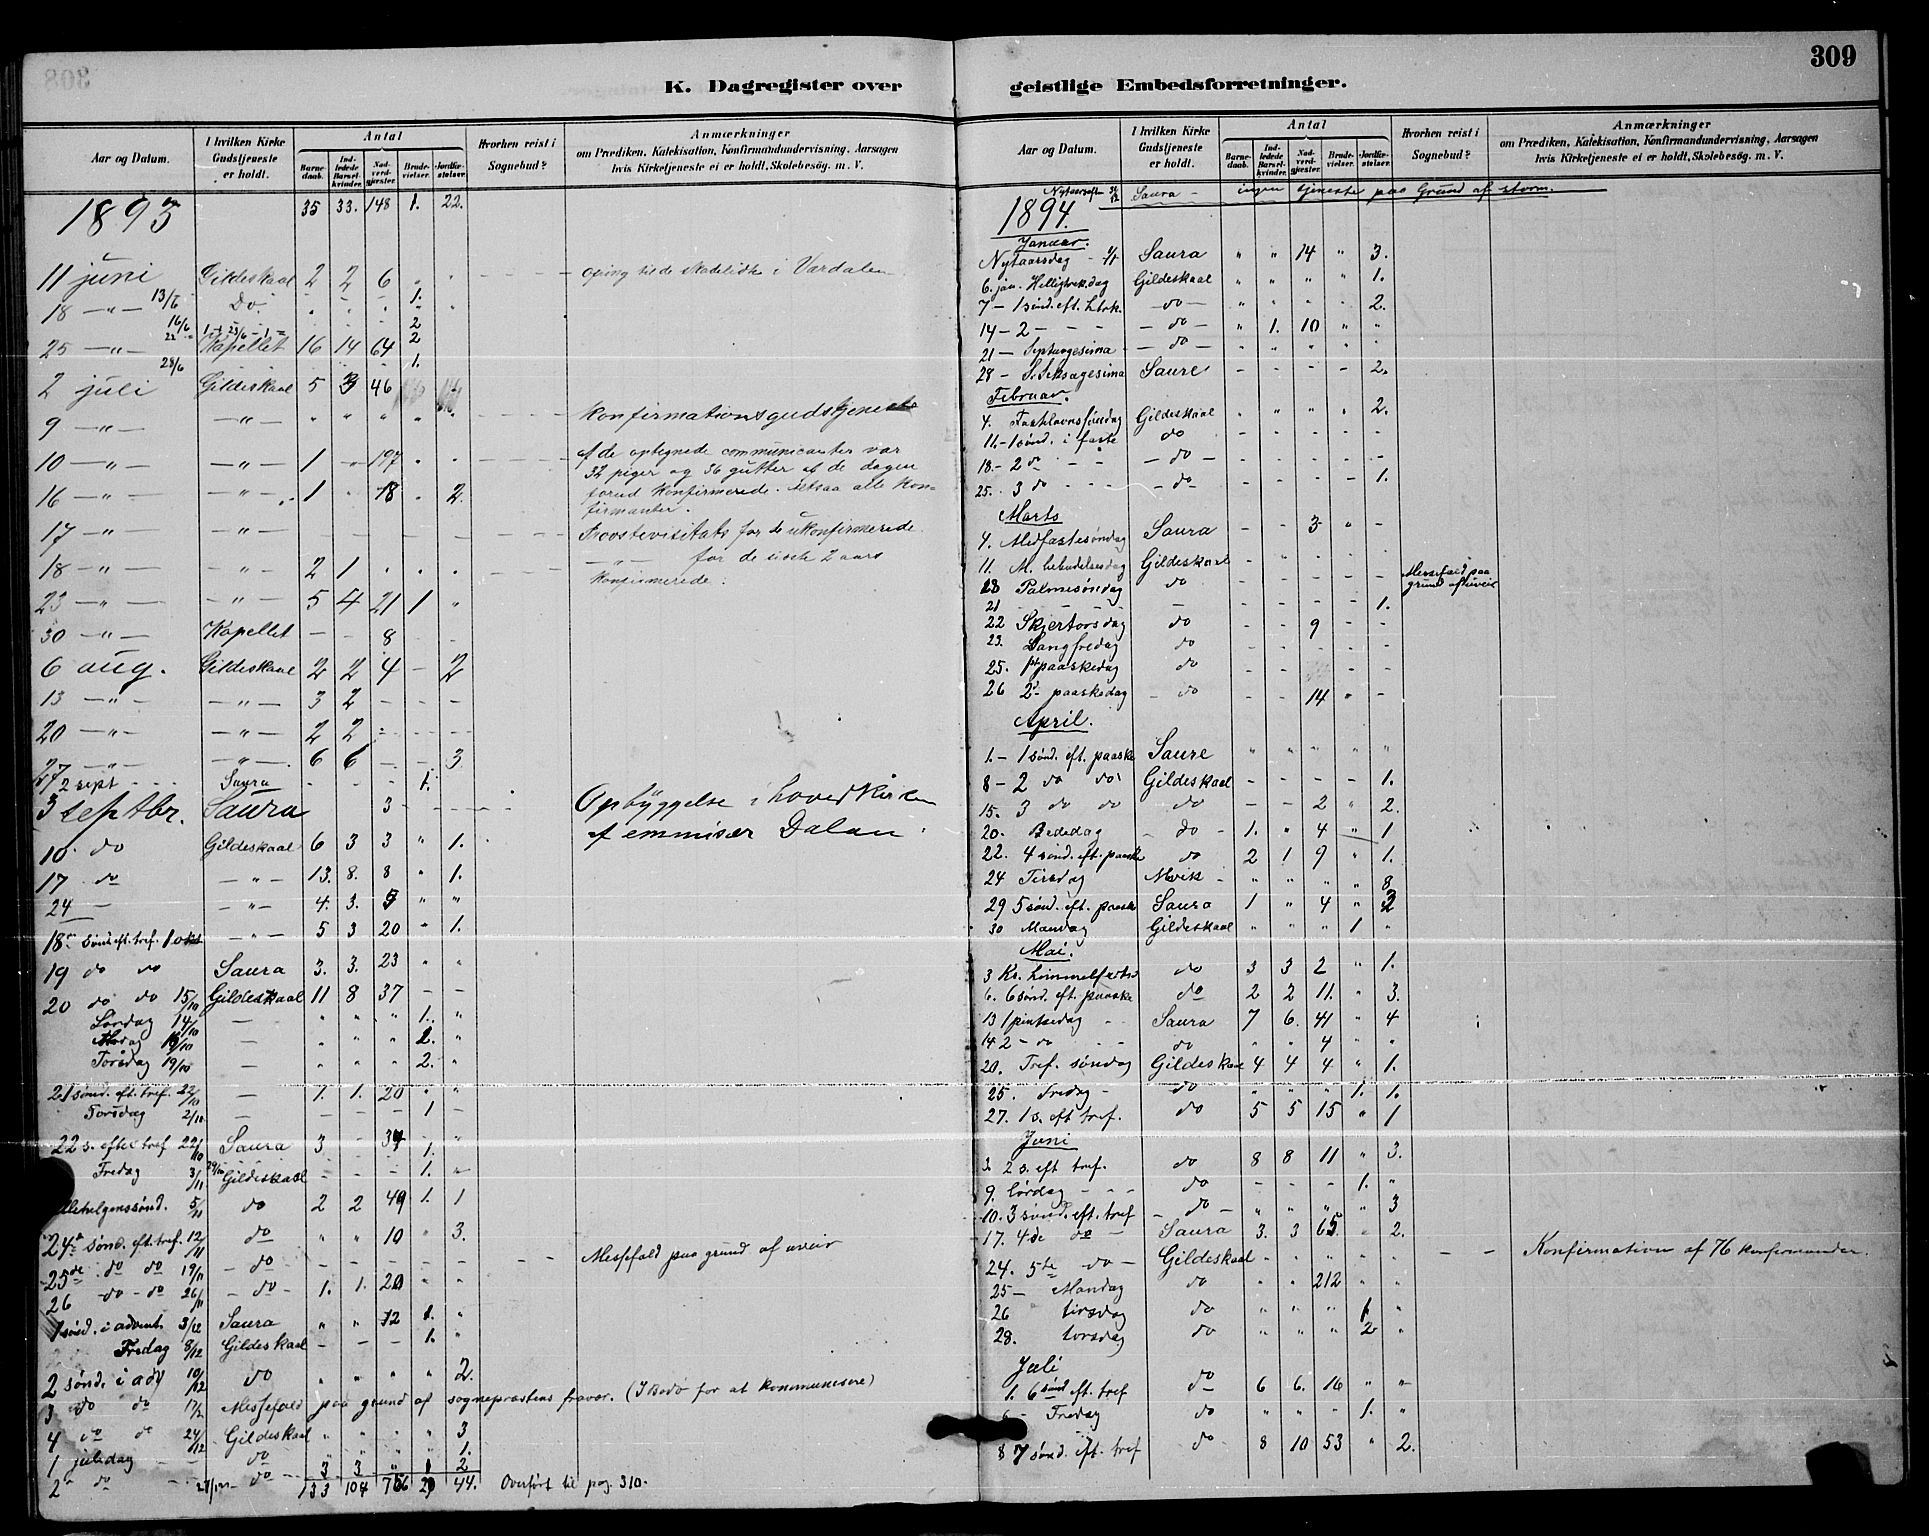 309
K. Dagregister over
geistlige Embedsforretninger.
Aar og Datum.
I hvilken Kirke Gudstjeneste er holdt.
Antal
Barnedaab.
Indledede Barselkvinder.
Nadverdgjester
Brudevielser.
Jordfæstelser.
Hvorhen reist i Sognebud?
Anmærkninger
om Prædiken, Katekisation, Konfirmandundervisning, Aarsagen
hvis Kirketjeneste ei er holdt, Skolebesøg. m. V.
1893 35 33. 148 1. 22.
11 juni Gildeskaal 2 2 6 " "
18 —"— 13/6 Do. 1.
16/6 2
25 —"— Kapellet 16 14 64 2
28/6 1.
2 juli Gildeskaal 5 3 46
9 —"— —"— " " " " " Konfirmationsgudstjeneste
10 —"— —"— 1 " 197 " " af de optegnede communicanter var
32 piger og 36 gutter af de dagen
16 —"— —"— 1 " 18 " 2. forud konfirmerede. altsaa alle kon=
firmanter.
17 —"— —"— Provstevisitats for de ukonfirmerede
—"— for de siste 2 aars
18 —"— —"— 2 1 " " " konfirmerede.
23 —"— —"— 5 4 21 1 "
30 —"— Kapellet — — 8 -
6 aug. Gildeskaal 2 2 4 - 2
13 —"— —"— 3 2 - - -
20 —"— —"— 2 2 - - -
27 —"— —"— 6 6 — — 3
2 sept Saura - - - 1.
3 septbr. Saura 3 - - Opbyggelse i hovedkirken
af emmisær Dalan.
10. do Gildeskaal 6 3 3 " 1.
17 do —"— 13. 8. 8 " 1.
24 — —"— 4. 3. 5 " "
18de sønd. eft. tref. 1. okt —"— 5 3 20 " 1.
19 do do Saura 3. 3. 23 " "
20 do do 15/10 Gildeskaal 11 8 37 - -
Lørdag 14/10 — " " " 1. "
18/10 — " " " 2. "
Torsdag 19/10 — " " " 2. "
21 sønd. eft. tref. 22/10 — 1. 1. 20 " "
Torsdag 2/10 — — — — 1 —
22 s. efter tref 22/10 Saura 3 - 34 - "
29/10 1.
Fredag 3/11 Gildeskaal - - - 1. "
5/11 do 2 2 49 1. 1
24de sønd. eft. tref. 12/11 do " " 10 " 3.
25de do do 19/11 — do — — — — — Messefald paa grund af uveir
26 do do 26/11 — do — 1. 1. 20 " "
1 sønd. i advent. 3/12 Saura " " 12 1. "
Fredag 8/12 Gildeskaal - - - 1. "
2 sønd. i adv 10/12 do " " " " 2.
3 do do 17/12 Messefald paa grund af sogneprestens fravær. (I Bodø for at kommunisere)
4 do do 24/12 Gildeskaal " " " " 3
1 juledag — do 1.
2 do — do 3 3 " 1 2
133 104 44. Overført til pag. 310.
Aar og Datum.
I hvilken Kirke Gudstjeneste er holdt.
Antal
Barnedaab.
Indledede Barselkvinder.
Nadverdgjester
Brudevielser.
Jordfæstelser.
Hvorhen reist i Sognebud?
Anmærkninger
om Prædiken, Katekisation, Konfirmandundervisning, Aarsagen
hvis Kirketjeneste ei er holdt, Skolebesøg. m. V.
Nytaarsaften 31/12 Saura — ingen tjeneste paa Grund af storm.
1894.
Januar.
Nytaarsdag — 1/1 Saura " " 14 " 3.
6. jan. Helligtrek.dag Gildeskaal " " " " 1.
7 — 1 sønd. eft. h.trk. — do — " " " " 2.
14 — 2 - - - — do " 1. 10 " "
21 — Septuagesima — do " " " " "
28 — S. Seksagesima Saure - - - - 2.
Februar.
4. Fastelavnssøndag Gildeskaal " " " " 2.
11. — 1 sønd. i faste do - - - - -
18. — 2 do - - — do — - - - - -
25. 3 do - - - — do - - - - 1.
Marts
4. Midfastesøndag Saura - - 3 " -
11. M. bebudelsesdag Gildeskaal - " " " "
18 Palmesøndag do - - - - - Messefald paa
grund af uveir
21 - - - - - 1.
22 Skjertorsdag do - - 9 - -
23. Langfredag do - - - - -
25. 1ste paaskedag do - - - -
26 2den paaskedag — do - - 14 " -
April.
1. — 1 sønd. eft. paaske Saure " " " " "
8 — 2 do do Gildeskaal - - - - 1.
15. 3 do do do - - 2 " 2.
20. Bededag — do — 1. " 4 " 1
22. 4 sønd. eft. paaske do 2 1 9 " 1.
24 Tirsdag " " " " 8
29 5 sønd. eft. paaske Saura 1 " 4 "
30 Mandag Gildeskaal " " " 1 "
Mai.
3 Kr. himmelfartsd do 3 3 2 " 1.
6. 6 sønd. eft. paaske do 2 2 11. " 3.
13 1 pintsedag - - Saura 7 6. 41 " 4
14 2 — do - - do " " 4 " "
20. Tref. søndag Gildeskaal 4 4 4 " 1.
25. Fredag — do " " " 1. 1.
27. 1 s. eft tref. do 5 5 15 " 1
Juni
3. 2 s. eft tref. do 8 8 11 " 3.
9. Lørdag - - - do - - - 1. "
10. 3 sønd. eft. tref — do — " " " " 3
17. 4de do — Saura 3. 3 65 " 2.
24. 5te do — Gildeskaal — — Konfirmation af 76 konfirmander
25 — Mandag do " " 212 " "
26 tirsdag do " " " 1 "
28. torsdag do " " " 2 "
Juli
1. 6 sønd eft. tref do 6 6. 16 " "
6 — Fredag do " " " 1. "
8 7 sønd. eft. tref do 8 10 53 " 2.